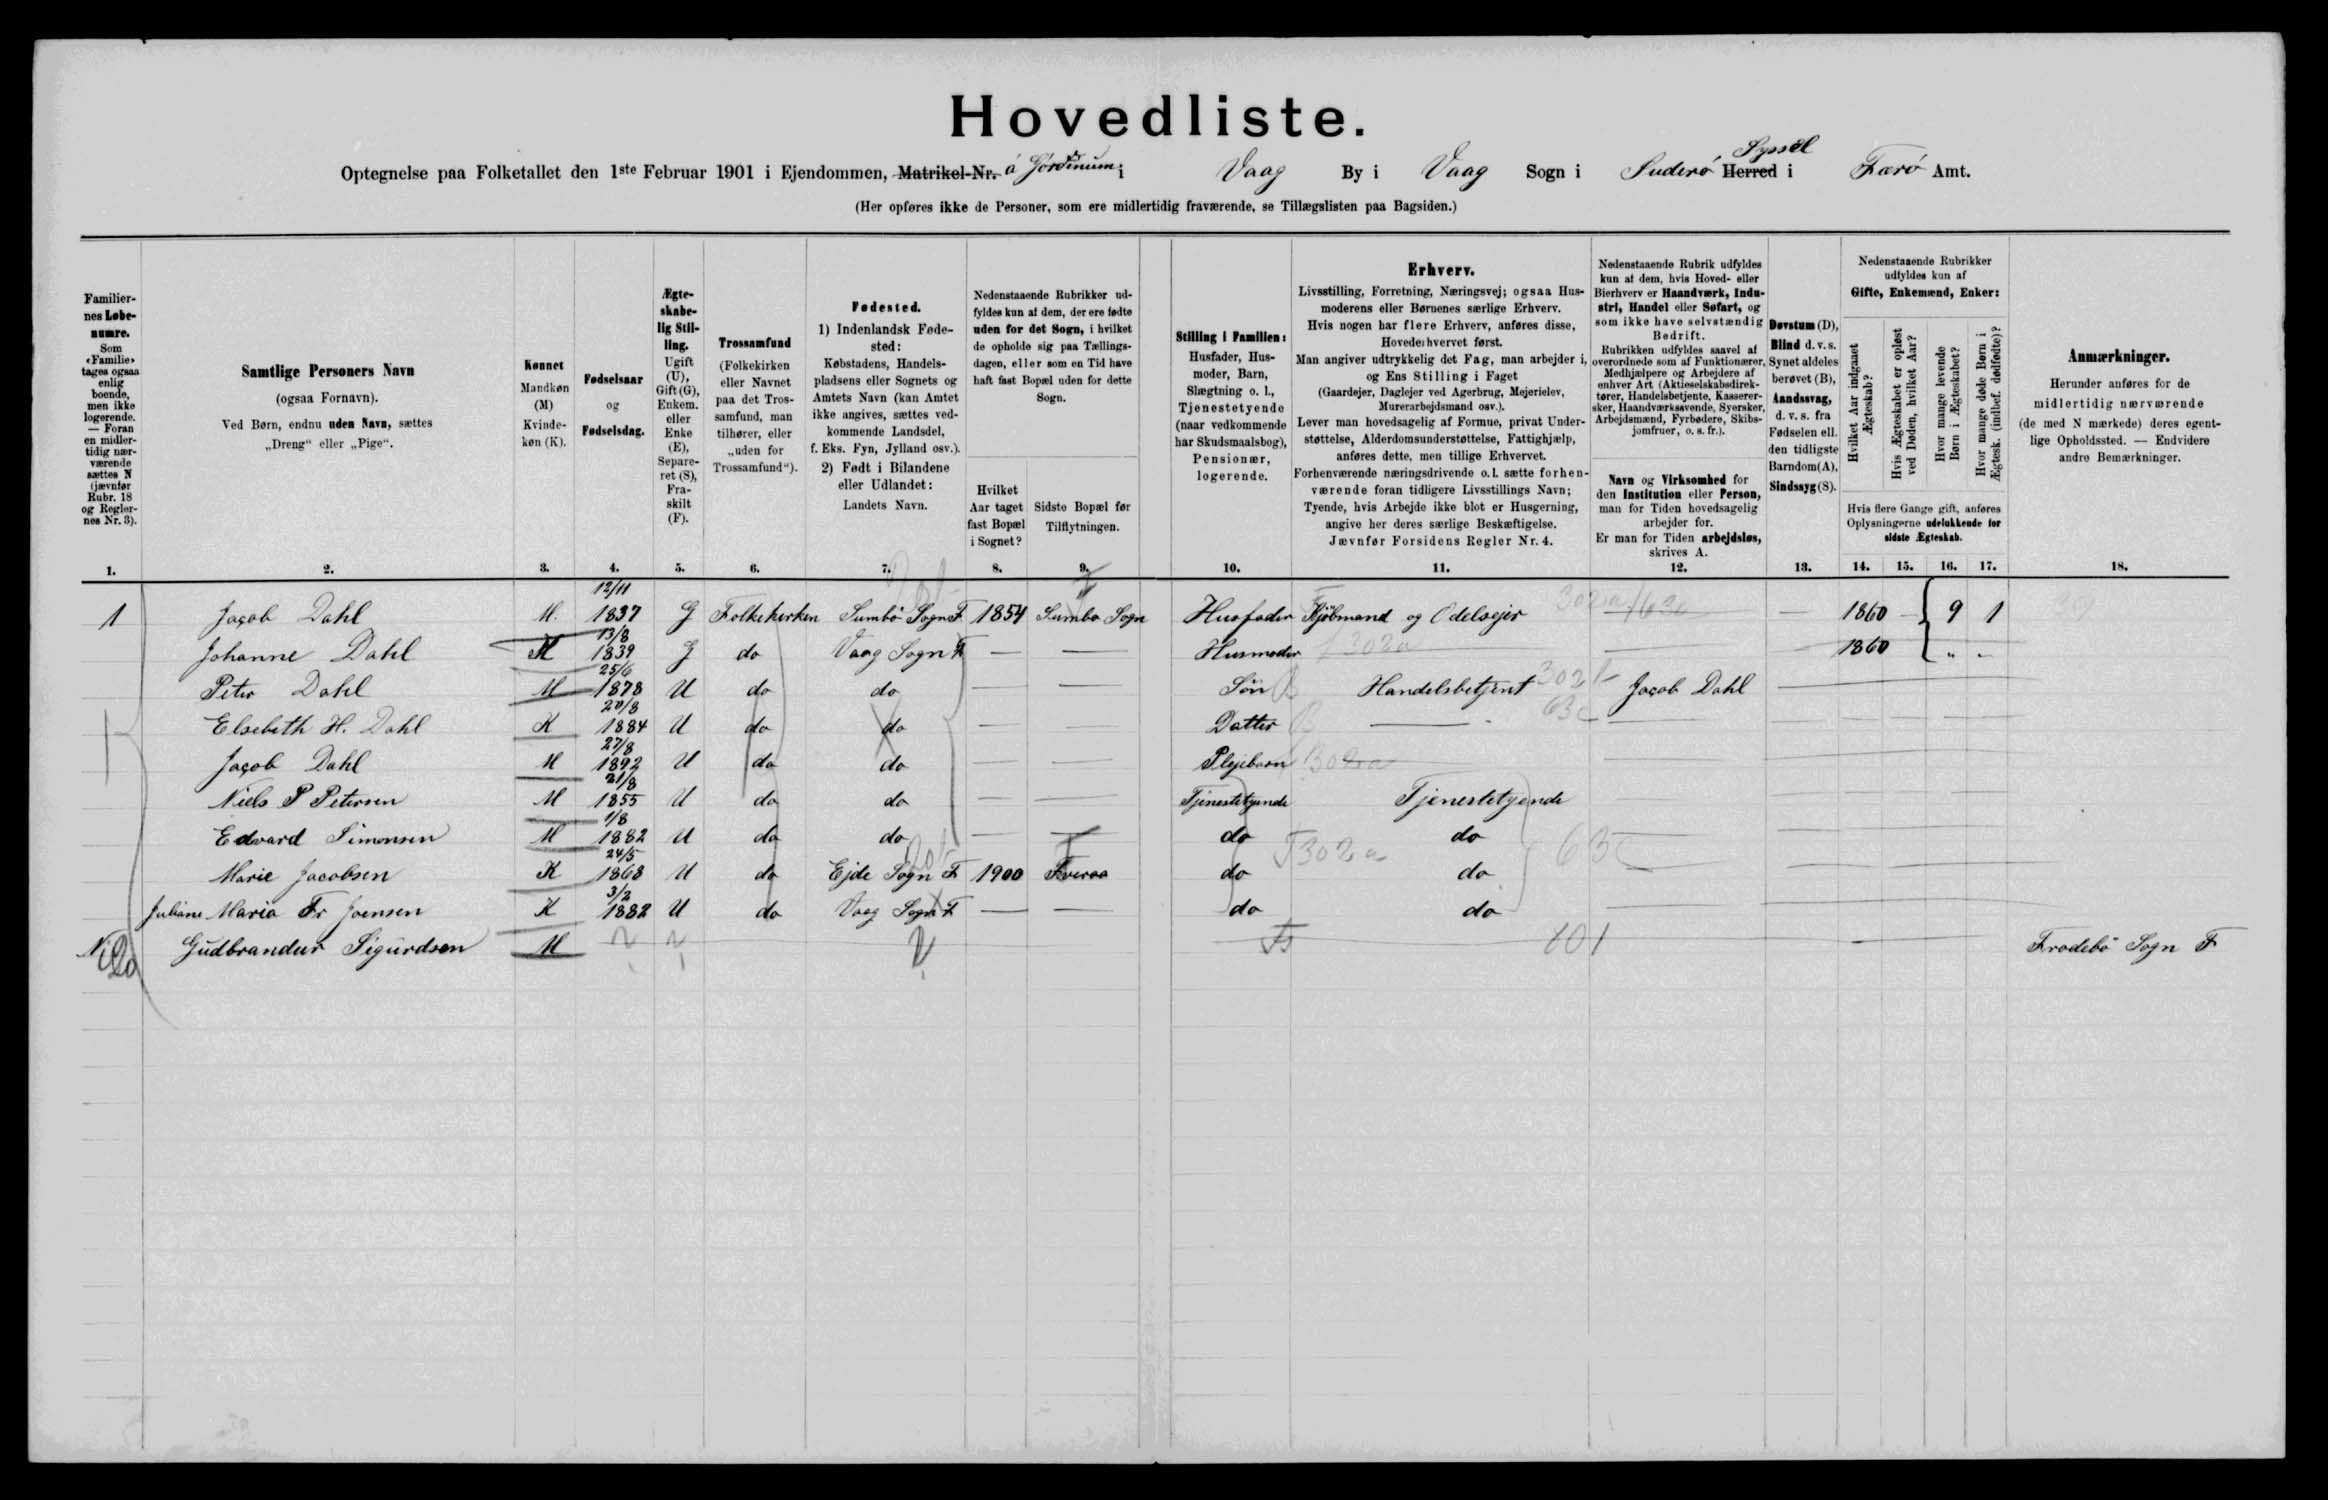 Hovedliste.
Syssel
Optegnelse paa Folketallet den 1ste Februar 1901 i Ejendommen, Matrikel-Nr. á Gørdinum i Vaag By i Vaag Sogn i Suderø Herred i Færø Amt.
(Her opføres ikke de Personer, som ere midlertidig fraværende, se Tillægslisten paa Bagsiden.)
Familier-
nes Løbe-
numre.
Som
«Familie»
tages ogsaa
enlig
boende,
men ikke
logerende.
— Foran
en midler-
tidig nær-
værende
sættes N
(jævnfør
Rubr. 18
og Regler-
nes Nr. 3).
Samtlige Personers Navn
(ogsaa Fornavn).
Ved Børn, endnu uden Navn, sættes
„Dreng“ eller „Pige“.
Kønnet
Mandkøn
(M)
Kvinde-
køn (K).
Fødselsaar
og
Fødselsdag.
Ægte-
skabe-
lig Stil-
ling.
Ugift
(U),
Gift (G),
Enkem.
eller
Enke
(E),
Separe-
ret (S),
Fra-
skilt
(F).
Trossamfund
(Folkekirken
eller Navnet
paa det Tros-
samfund, man
tilhører, eller
„uden for
Trossamfund“).
Fødested.
1) Indenlandsk Føde-
sted:
Købstadens, Handels-
pladsens eller Sognets og
Amtets Navn (kan Amtet
ikke angives, sættes ved-
kommende Landsdel,
f. Eks. Fyn, Jylland osv.).
2) Født i Bilandene
eller Udlandet:
Landets Navn.
Nedenstaaende Rubrikker ud-
fyldes kun af dem, der ere fødte
uden for det Sogn, i hvilket
de opholde sig paa Tællings-
dagen, eller som en Tid have
haft fast Bopæl uden for dette
Sogn.
Hvilket
Aar taget
fast Bopæl
i Sognet?
Sidste Bopæl før
Tilflytningen.
Stilling i Familien:
Husfader, Hus-
moder, Barn,
Slægtning o. l.,
Tjenestetyende
(naar vedkommende
har Skudsmaalsbog),
Pensionær,
logerende.
Erhverv.
Livsstilling, Forretning, Næringsvej; ogsaa Hus-
moderens eller Børnenes særlige Erhverv.
Hvis nogen har flere Erhverv, anføres disse,
Hovederhvervet først.
Man angiver udtrykkelig det Fag, man arbejder i,
og Ens Stilling i Faget
(Gaardejer, Daglejer ved Agerbrug, Mejerielev,
Murerarbejdsmand osv.).
Lever man hovedsagelig af Formue, privat Under-
støttelse, Alderdomsunderstøttelse, Fattighjælp,
anføres dette, men tillige Erhvervet.
Forhenværende næringsdrivende o. l. sætte forhen-
værende foran tidligere Livsstillings Navn;
Tyende, hvis Arbejde ikke blot er Husgerning,
angive her deres særlige Beskæftigelse.
Jævnfør Forsidens Regler Nr. 4.
Nedenstaaende Rubrik udfyldes
kun af dem, hvis Hoved- eller
Bierhverv er Haandværk, Indu-
stri, Handel eller Søfart, og
som ikke have selvstændig
Bedrift.
Rubrikken udfyldes saavel af
overordnede som af Funktionærer,
Medhjælpere og Arbejdere af
enhver Art (Aktieselskabsdirek-
tører, Handelsbetjente, Kasserer-
sker, Haandværkssvende, Syersker,
Arbejdsmænd, Fyrbødere, Skibs-
jomfruer, o. s. fr.).
Navn og Virksomhed for
den Institution eller Person,
man for Tiden hovedsagelig
arbejder for.
Er man for Tiden arbejdsløs,
skrives A.
Døvstum (D),
Blind d. v. s.
Synet aldeles
berøvet (B),
Aandssvag,
d. v. s. fra
Fødselen ell.
den tidligste
Barndom (A),
Sindssyg (S).
Nedenstaaende Rubrikker
udfyldes kun af
Gifte, Enkemænd, Enker:
Hvilket Aar indgaaet
Ægteskab?
Hvis Ægteskabet er opløst
ved Døden, hvilket Aar?
Hvor mange levende
Børn i Ægteskabet?
Hvor mange døde Børn i
Ægtesk. (indbef. dødfødte)?
Hvis flere Gange gift, anføres
Oplysningerne udelukkende for
sidste Ægteskab.
Anmærkninger.
Herunder anføres for de
midlertidig nærværende
(de med N mærkede) deres egent-
lige Opholdssted. — Endvidere
andre Bemærkninger.
1. 2. 3. 4. 5. 6. 7. 8. 9. 10. 11. 12. 13. 14. 15. 16. 17. 18.
1 Jacob Dahl M. 12/11 1837 G Folkekirken Sumbø Sogn F. 1854 Sumbø Sogn Husfader Kjøbmand og Odelsejer 302a/63a — 1860 — 9 1
Johanne Dahl K 13/8 1839 G do Vaag Sogn F — — Husmoder 302a — — 1860 „ „
Peter Dahl M 25/6 1878 U do do — — Søn Handelsbetjent 302b Jacob Dahl
Elsebeth H. Dahl K 20/8 1884 U do do — — Datter — 63c —
Jacob Dahl M 27/8 1892 U do do — — Plejebarn 302a —
Niels P Petersen M 21/8 1855 U do do — — Tjenestetyende Tjenestetyende
Edvard Simonsen M 1/8 1882 U do do — — do do
Marie Jacobsen K 24/5 1868 U do Ejde Sogn F 1900 Kveraa do 302a do 63c
Juliane Maria Fr Joensen K 3/2 1882 U do Vaag Sogn F — — do do
N Gudbrandur Sigurdsen M ? ? ? 601 — Frodebø Sogn F